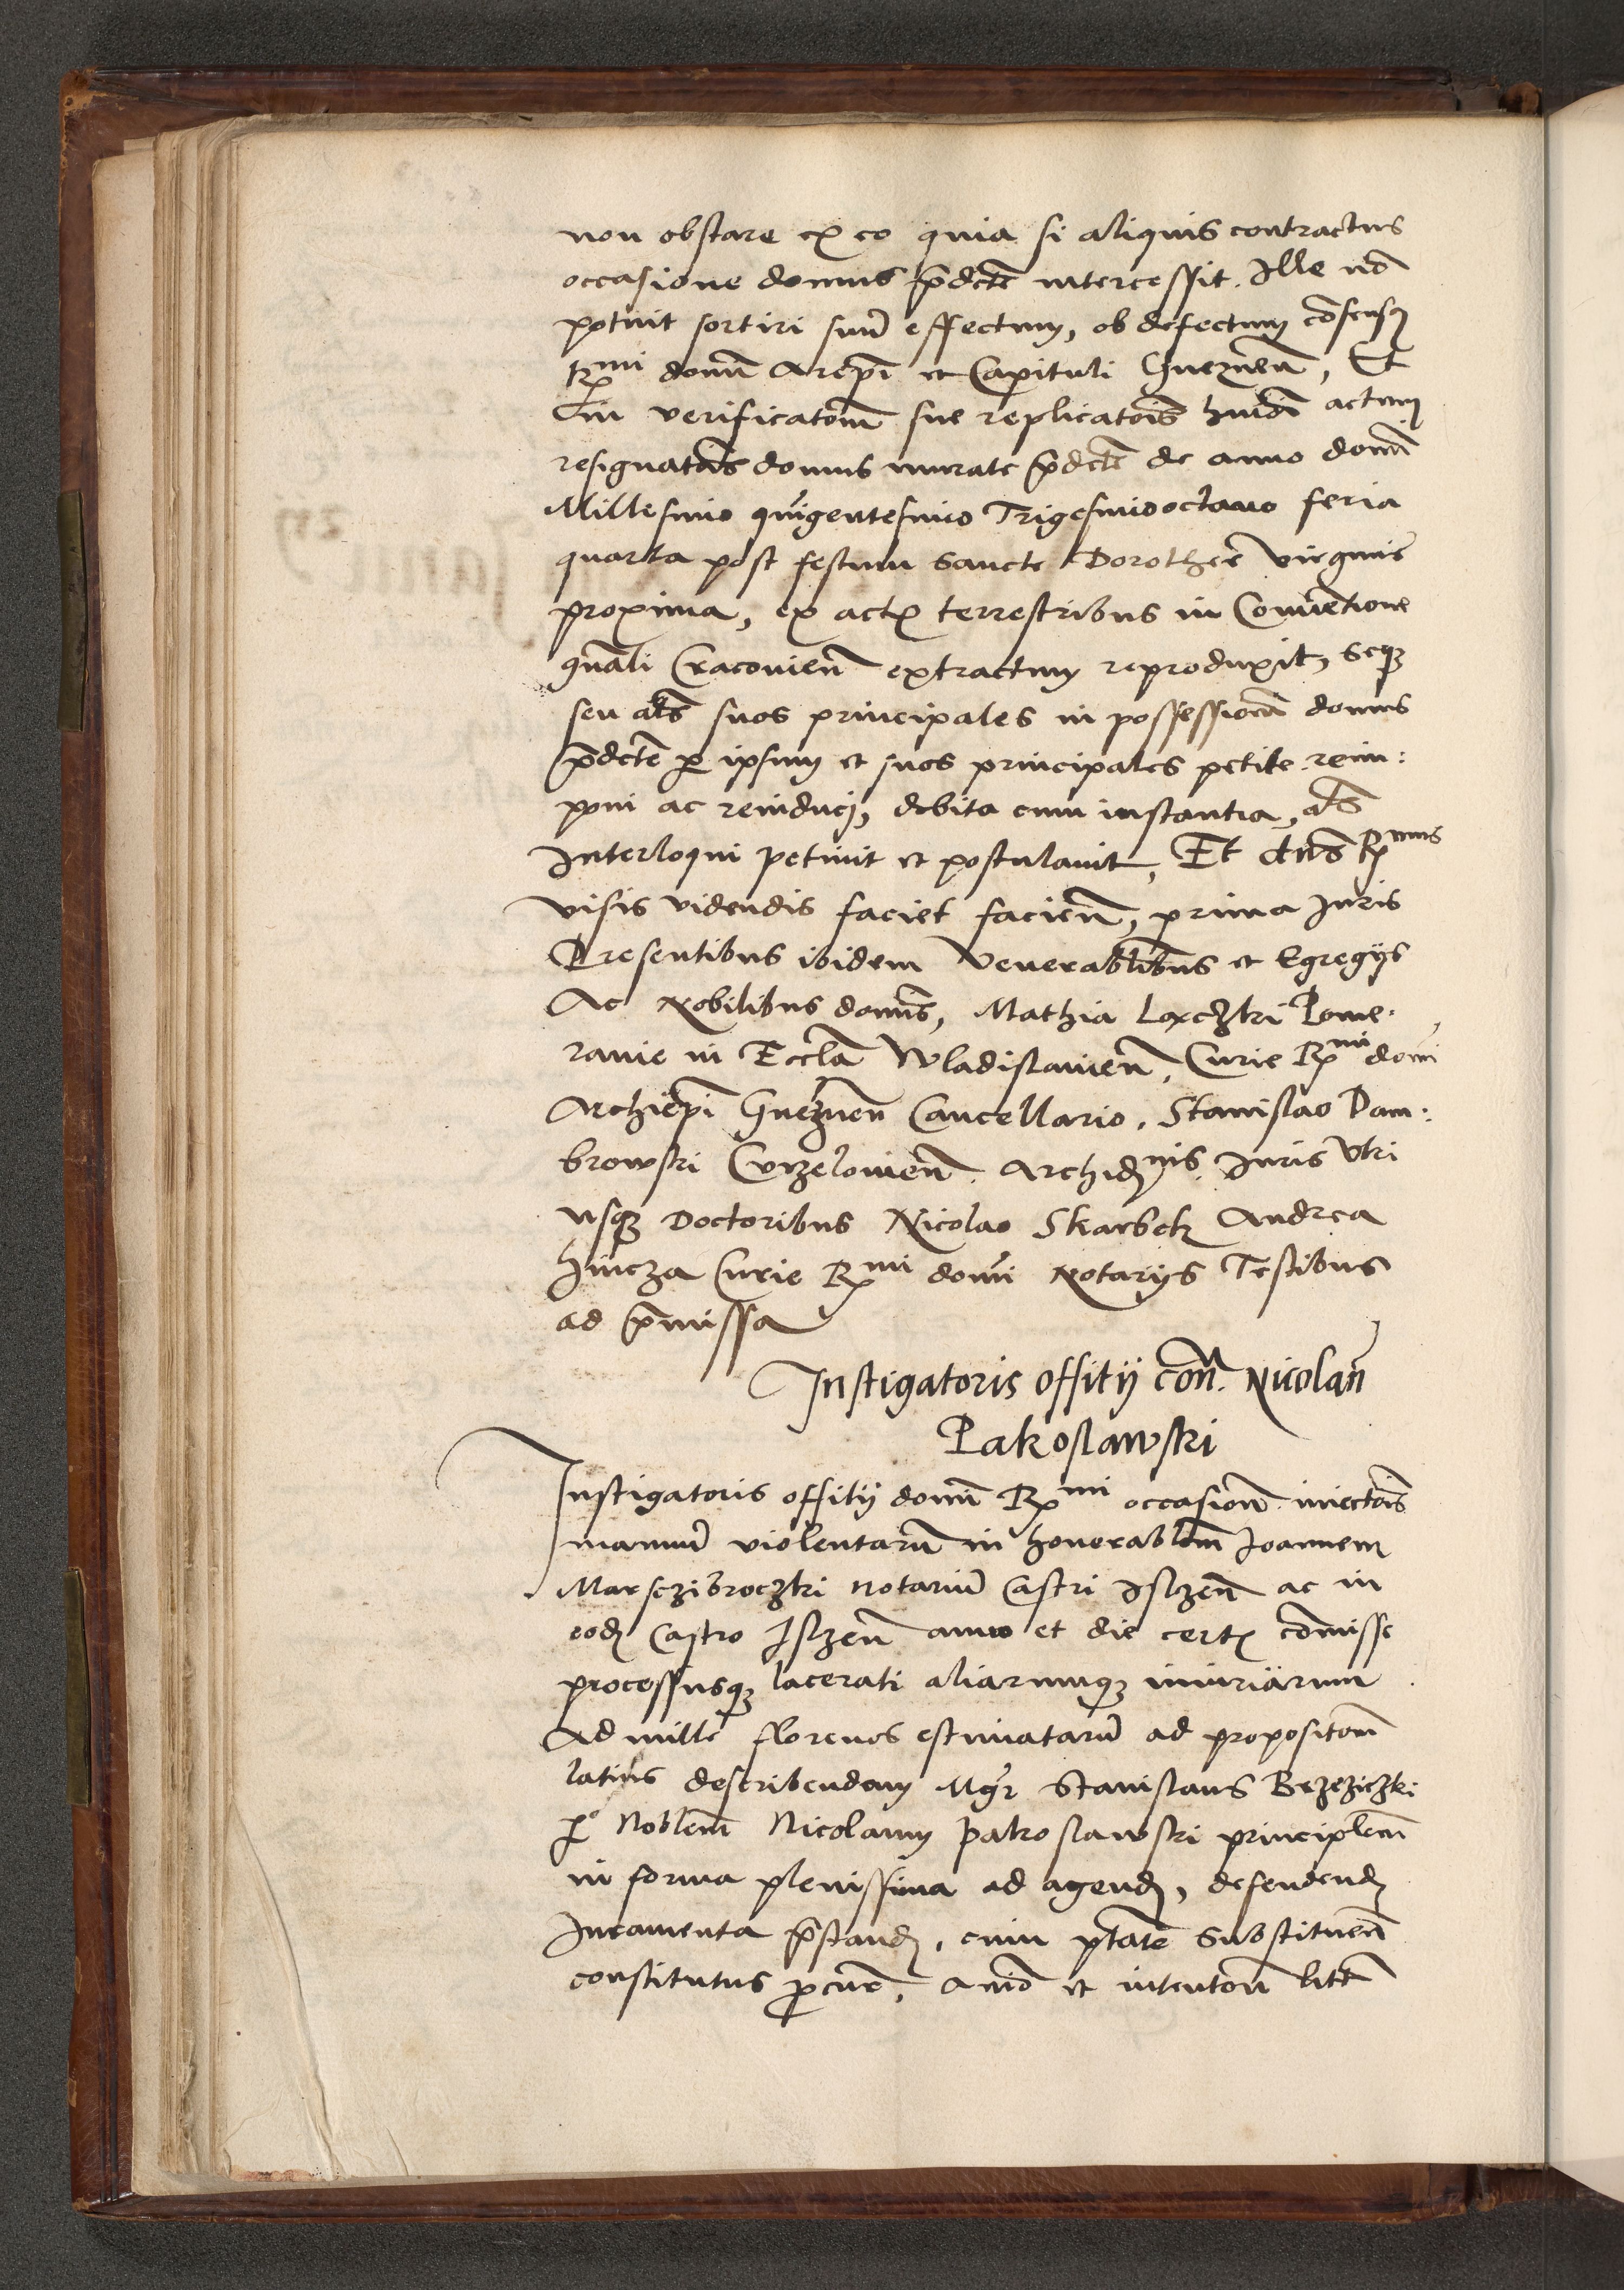 non obstare ex eo quia si aliquis contractus
occasione domus p̄dcte intercessit. Ille nō
potuit sortiri suū effectum, ob defectum cōsensus
Rmi domī Arepī et Capituli Gneznen̄, Et
in verificatōem sue replicatōis huiōi actum
resignatōis domus murate p̄dcte de anno domī
Millesimo quīgentesimo Trigesimooctavo feria
quarta post festum sancte Dorothee virginis
proxima, ex actis terrestribus in Conventione
gnāli Cracovien̄ extractum reproduxit, seqʒ
seu als suos principales in possessionē domus
p̄dcte p̱ ipsum et suos principales petite reim:
poni ac reinduci, debita cum instantia, als
Interloqui petivit et postulavit, Et dn̄s Rmus
visis videndis faciet facien̄, prima Juris
Presentibus ibidem Venerablibus et Egregijs
Ac Nobilibus domīs, Mathia Loyczki Pome:
ranie in Eccla Wladislavien̄, Curie Rmi domī
Archiepī Gneznen̄ Cancellario, Stanislao Dam:
browski Curzelovien̄ Archidnis, Juris Utri
usqʒ Doctoribus Nicolao Skarbek Andrea
Hincza Curie Rmi domī Notarijs Testibus
ad p̄missa
Instigatoris offitij con̄. Nicolaū
Pakoslawski
Instigatoris offitij domī Rmi occasione iniectōis
manuū violentarū in honorablem Joannem
Notariū Castri Ilszen̄ ac in
eodē Castro Ilszen̄ anno et die certis cōmisse
processusqʒ lacerati aliarumqʒ iniuriarum
Ad mille florenos estimatarū ad propositōem
latius describendam Mgr Stanislaus Brzeziczki
p̱ Noblem Nicolaum Pakoslawski principlem
in forma plenissima ad agendū, defendendū
Juramenta p̄standū, cum ptate substituen̄
constitutus p̱cur, animo et intentōe lite